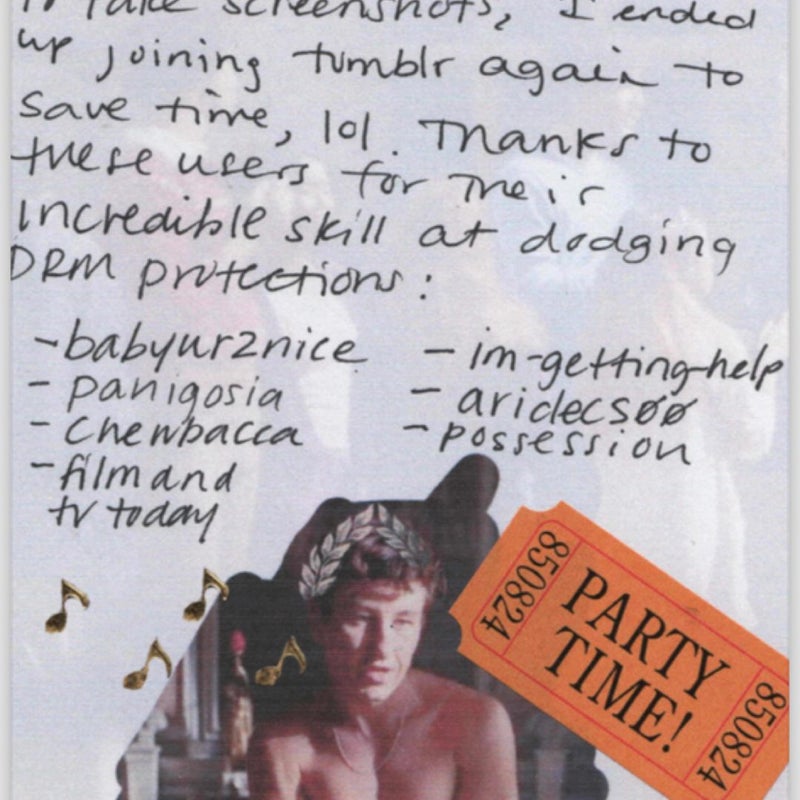 to take screenshots, I ended
up joining tumblr again to
save time, lol. Thanks to
these users for their
incredible skill at dodging
DRM protections:
- babyur2nice
- panigosia
- chewbacca
- filmand
tv today
- im-getting-help
- aridecs00
- possession
850824
PARTY
TIME!
850824